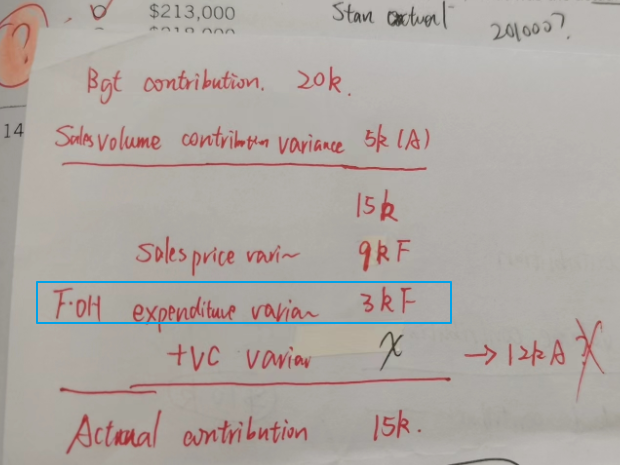 $213,000
Stan actual
201000?
Bgt contribution. 20k.
14
Sales volume contribution variance 5k (A)
15k
Sales price vari~ 9k F
F.OH expenditure varian 3k F
+VC varian x → 12k A
Actual contribution 15k.